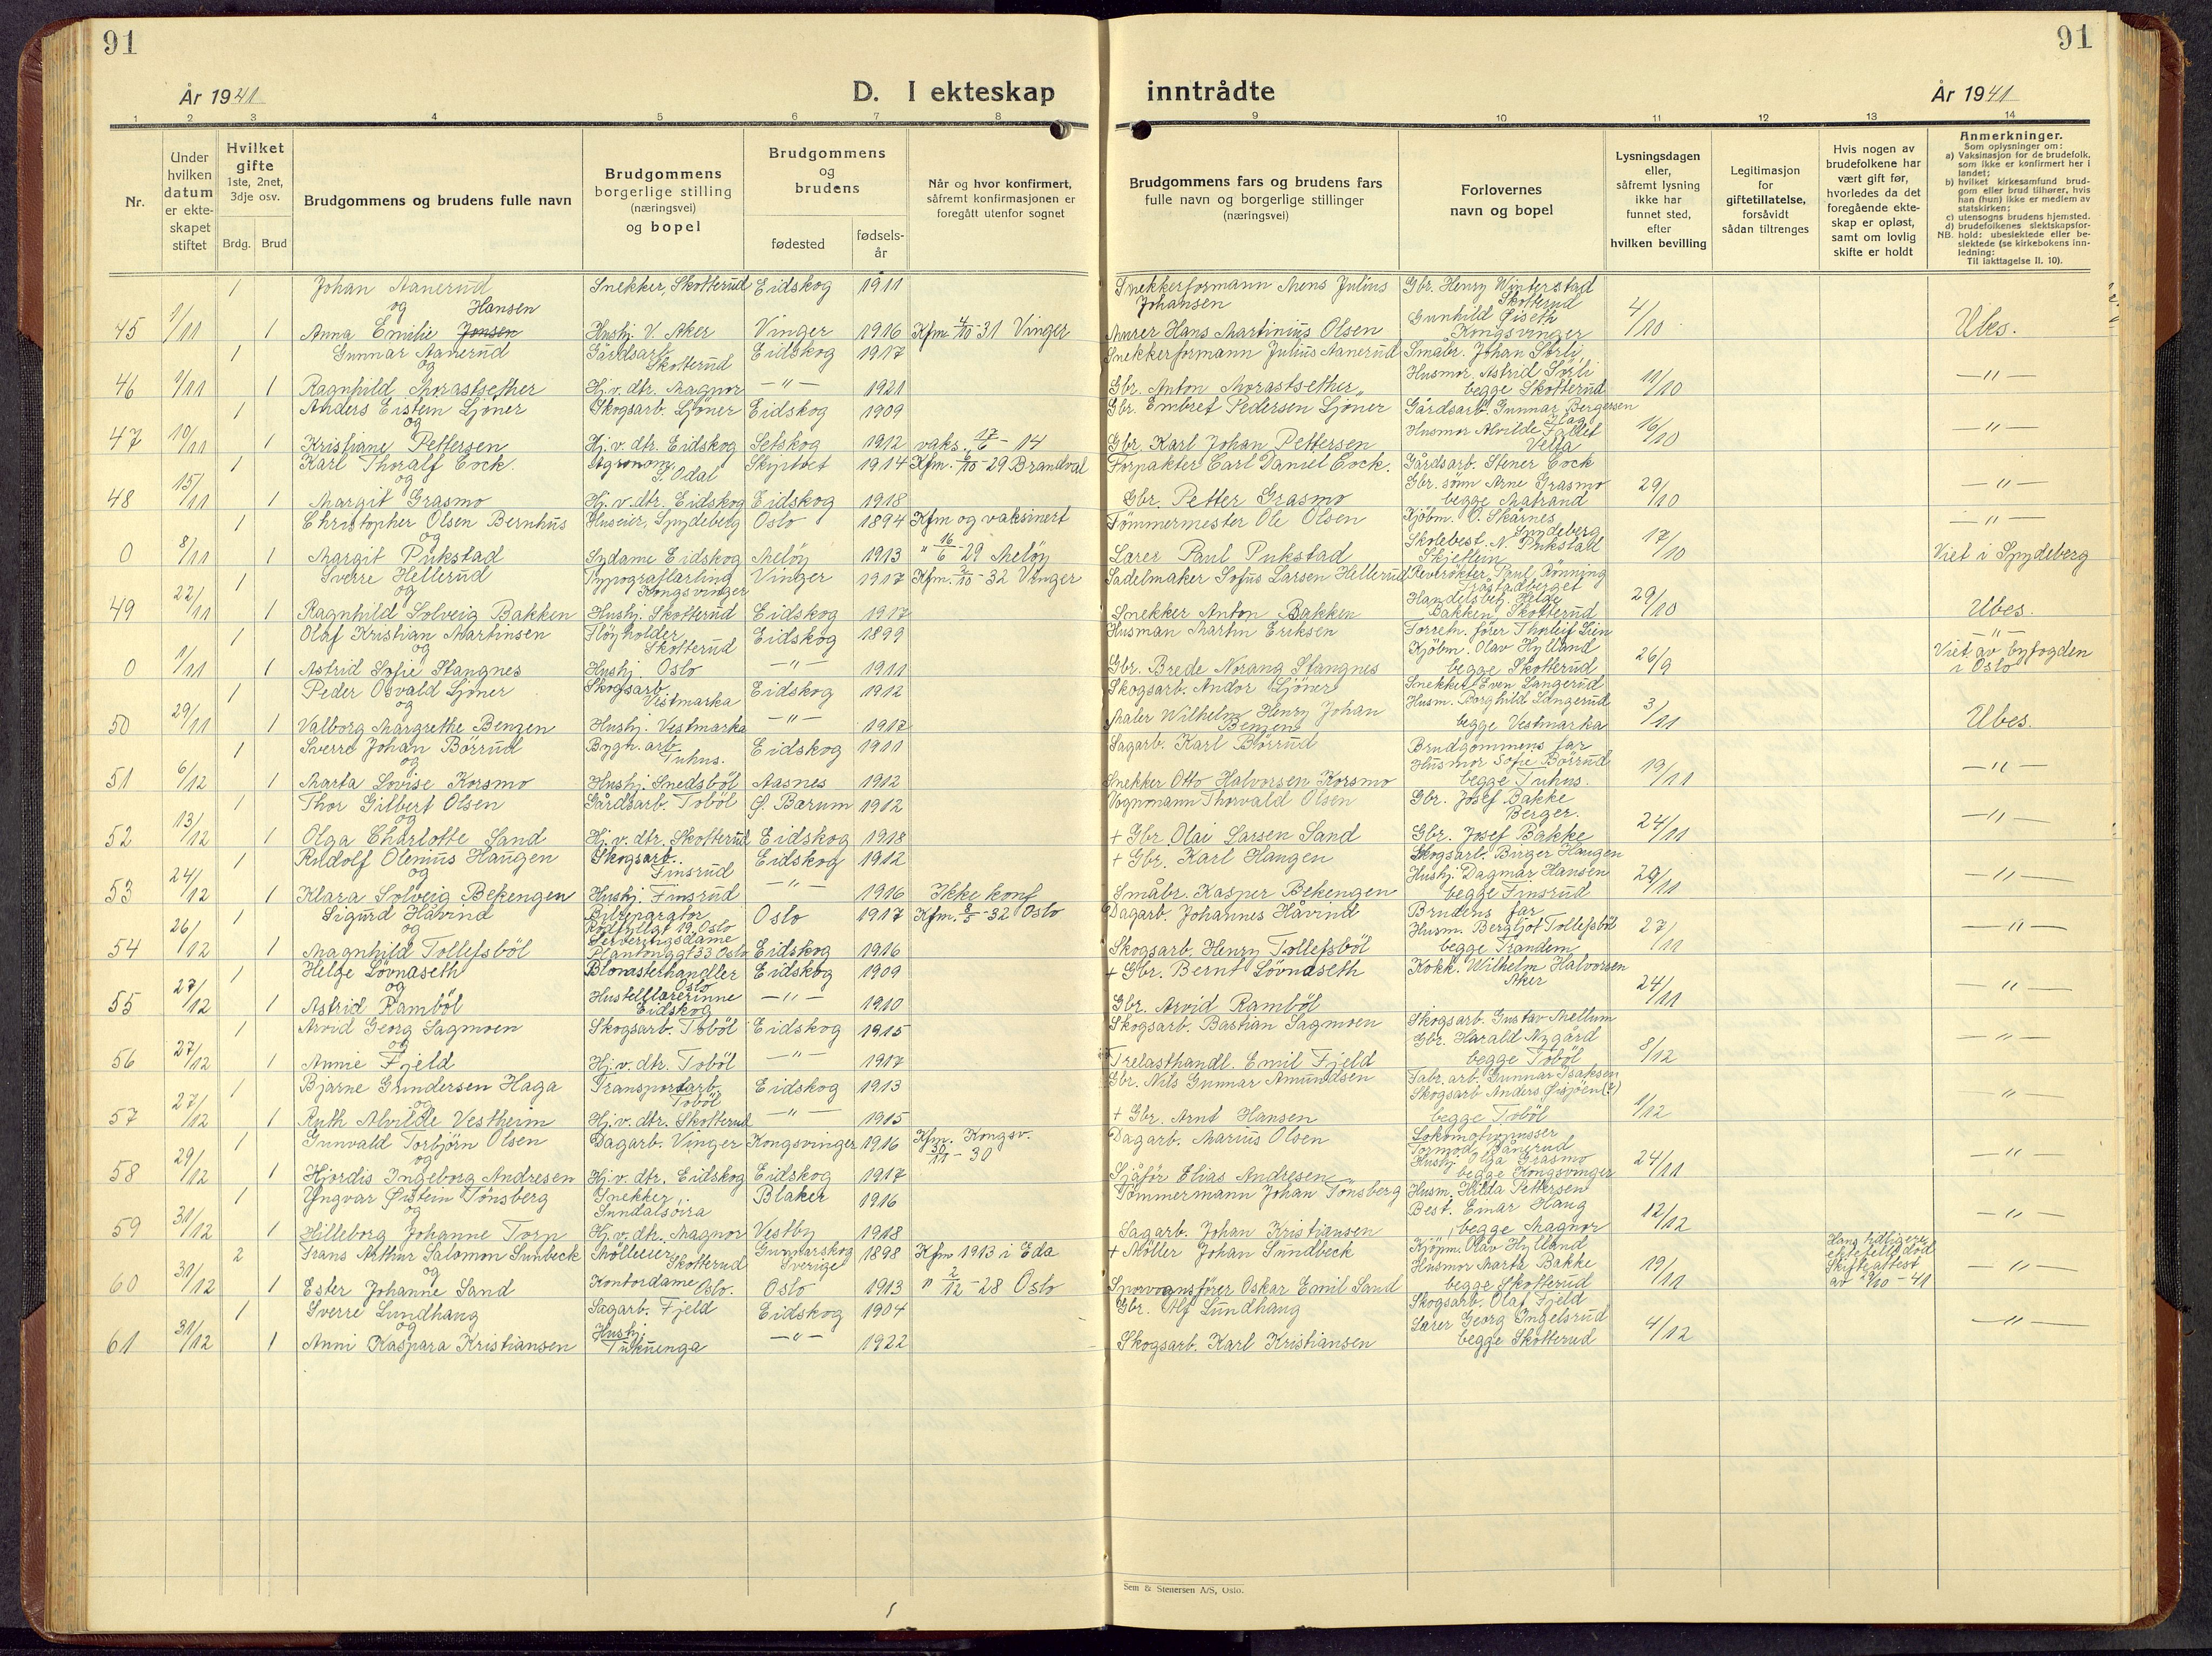 91
91
År 1941
D. I ekteskap inntrådte
År 1941
1 2 3 4 5 6 7 8 9 10 11 12 13 14
Nr.
Under hvilken datum er ekteskapet stiftet
Hvilket gifte 1ste, 2net, 3dje osv.
Brdg. Brud
Brudgommens og brudens fulle navn
Brudgommens borgerlige stilling (næringsvei) og bopel
Brudgommens og brudens
fødested
fødsels-år
Når og hvor konfirmert, såfremt konfirmasjonen er foregått utenfor sognet
Brudgommens fars og brudens fars fulle navn og borgerlige stillinger (næringsvei)
Forlovernes navn og bopel
Lysningsdagen eller, såfremt lysning ikke har funnet sted, efter hvilken bevilling
Legitimasjon for giftetillatelse, forsåvidt sådan tiltrenges
Hvis nogen av brudefolkene har vært gift før, hvorledes da det foregående ekteskap er opløst, samt om lovlig skifte er holdt
Anmerkninger.
Som oplysninger om:
a) Vaksinasjon for de brudefolk, som ikke er konfirmert her i landet;
b) hvilket kirkesamfund brudgom eller brud tilhører, hvis han (hun) ikke er medlem av statskirken;
c) utensogns brudens hjemsted.
d) brudefolkenes slektskapsforhold: ubeslektede eller beslektede (se kirkebokens innledning:
NB. Til iakttagelse II. 10).
1 Johan Aanerud Snekker, Skotterud Eidskog 1911 Snekkerformann Mens Julius Johansen Gbr. Henry Winterstad Skotterud
og Hansen
45 1/11 1 Anna Emilie Jonsen Hushj. V. Aker Vinger 1916 Kfm. 4/10-31 Vinger Murer Hans Martinius Olsen Gunhild Øiseth Kongsvinger 4/10 Ubes.
1 Gunnar Aanerud Gårdsarb. Skotterud Eidskog 1917 Snekkerformann Julius Aanerud Småbr. Johan Sørli
og
46 1/11 1 Ragnhild Morastsether Hj. v. dtr. Magnor —"— 1921 Gbr. Anton Morastsether Husmor. Astrid Sørli begge Skotterud 11/10 —"—
1 Anders Eistein Ljøner Skogsarb. Ljøner Eidskog 1909 Gbr. Embret Pedersen Ljøner Gårdsarb. Gunnar Bergersen
og
47 10/11 1 Kristiane Pettersen Hj. v. dtr. Eidskog Setskog 1912 vaks. 17/6-14 Gbr. Karl Johan Pettersen Husmor Alvilde 16/10 —"—
1 Karl Thoralf Cock. Agronom, S. Odal 1914 Kfm. 6/10-29 Brandval Forpakter Carl Daniel Cock. Gårdsarb. Stener Cock
og
48 15/11 1 Margit Grasmo Hj. v. dtr. Eidskog Eidskog 1918 Gbr. Petter Grasmo Gbr. sønn Arne Grasmo begge Matrand 29/10 —"—
1 Christopher Olsen Bernhus Huseier, Spydeberg Oslo 1894 Kfm og vaksinert Tømmermester Ole Olsen Kjøbm. O. Skårnes Spydeberg —"—
og
0 8/11 1 Margit Pukstad Sydame Eidskog Meløy 1913 " 16/6-29 Meløy Lærer Paul Pukstad Skolebest. N. Pukstad Skjetlein 17/10 Viet i Spydeberg
1 Sverre Hellerud Typograflærling Kongsvinger Vinger 1917 Kfm. 2/10-32 Vinger Sadelmaker Sofus Larsen Hellerud Revrøkter Paul Rønning Tråstadberget
og
49 22/11 1 Ragnhild Solveig Bakken Hushj. Skotterud Eidskog 1917 Snekker Anton Bakken Handelsbetj. Helge Bakken, Skotterud 29/10 Ubes.
1 Olaf Kristian Martinsen Fløyholder Skotterud Eidskog 1899 Husman Martin Eriksen Forretn. fører Thorleif Lien —"—
og
0 1/11 1 Astrid Sofie Stangnes Hushj. Oslo —"— 1911 Gbr. Brede Norang Stangnes Kjøbm. Olav Hylland begge Skotterud 26/9 Viet av byfogden i Oslo
1 Peder Osvald Ljøner Skogsarb. Vestmarka Eidskog 1912 Skogsarb. Andor Ljøner Snekker Even Langerud
og
50 29/11 1 Valborg Margrethe Benzen Hushj. Vestmarka —"— 1917 Maler Wilhelm Henry Johan Benzen Husm. Borghild Langerud begge Vestmarka 3/11 Ubes.
1 Sverre Johan Børrud Bygn. arb. Tuhus. Eidskog 1911 Sagarb. Karl Børrud Brudgommens far
og
51 6/12 1 Marta Lovise Korsmo Hushj. Snedsbøl Aasnes 1912 Snekker Otto Halvorsen Korsmo Husmor Sofie Børrud begge Tuhus. 19/11 —"—
1 Thor Gilbert Olsen Gårdsarb. Tobøl Ø. Bærum 1912 Vognmann Thorvald Olsen Gbr. Josef Bakke Berger.
og
52 13/12 1 Olga Charlotte Sand Hj. v. dtr. Skotterud Eidskog 1918 + Gbr. Olai Larsen Sand Gbr. Josef Bakke 24/11 —"—
1 Rudolf Olenius Haugen Skogsarb. Finsrud Eidskog 1912 + Gbr. Karl Haugen Skogsarb. Birger Haugen
og
53 24/12 1 Klara Solveig Bekengen Hushj. Finsrud —"— 1916 Ikke konf Småbr. Kasper Bekengen Hushj. Dagmar Hansen begge Finsrud 29/11 —"—
1 Sigurd Håvind Bilreparatør Rodfyllgt 19, Oslo Oslo 1917 Kfm. 8/5-32 Oslo Dagarb. Johannes Håvind Brudens far
og
54 26/12 1 Magnhild Tollefsbøl Serveringsdame Plantonggt 33 Oslo Eidskog 1916 Skogsarb. Henry Tollefsbøl Husm. Bergljot Tollefsbøl begge Trandem 27/11 —"—
1 Helge Løvnaseth Blomsterhandler Oslo Eidskog 1909 + Gbr. Bernt Løvnaseth Kokk. Wilhelm Halvorsen Aker
og
55 27/12 1 Astrid Rambøl Hustellærerinne Eidskog —"— 1910 Gbr. Arvid Rambøl 24/11 —"—
1 Arvid Georg Sagmoen Skogsarb. Tobøl Eidskog 1915 Skogsarb. Bastian Sagmoen Skogsarb. Gustav Mellum
og
56 27/12 1 Annie Fjeld Hj. v. dtr. Tobøl —"— 1917 Trelasthandl. Emil Fjeld Gbr. Harald Nygård begge Tobøl 8/12 —"—
1 Bjarne Gundersen Haga Transportarb. Tobøl Eidskog 1913 Gbr. Nils Gunnar Amundsen Fabr. arb. Gunnar Isaksen
og
57 27/12 1 Ruth Alvilde Vestheim Hj. v. dtr. Skotterud —"— 1915 + Gbr. Arnt Hansen Skogsarb Anders Øisjøen(?) begge Tobøl 1/12 —"—
1 Gunvald Torbjørn Olsen Dagarb. Vinger Kongsvinger 1916 Kfm. Kongsv. 30/11-30 Dagarb. Marius Olsen Lokomotivpusser Tormod
og
58 29/12 1 Hjørdis Ingeborg Andresen Hj. v. dtr. Eidskog Eidskog 1917 Sjåfør Elias Andresen Hushj. Olga Grasmo begge Kongsvinger 24/11 —"—
1 Yngvar Øistein Tønsberg Snekker, Sundalsøra Blaker 1916 Tømmermann Johan Tønsberg Husm. Hilda Pettersen
og
59 31/12 1 Hilleborg Johanne Torp Hj. v. dtr. Magnor Vestby 1918 Sagarb. Johan Kristiansen Best. Einar Haug begge Magnor 12/12 —"—
2 Frans Arthur Salomon Sunbeck Mølleeier Skotterud Gunnarskog Sverige 1898 Kfm 1913 i Eda + Møller Johan Sundbeck Kjøpm. Olav Hylland Hans tidligere ektefelle død Skifteattest av 29/10-41
og
60 31/12 1 Ester Johanne Sand Kontordame Oslo. Oslo 1913 " 2/12-28 Oslo Sporvognsfører Oskar Emil Sand Husmor Marte Bakke begge Skotterud 19/11 —"—
1 Sverre Lundhaug Sagarb. Fjeld Eidskog 1904 Gbr. Alf Lundhaug Skogsarb. Olaf Fjeld
og
61 31/12 1 Anni Kaspara Kristiansen Hushj. —"— 1922 Skogsarb. Karl Kristiansen Lærer Georg Ingelsrud begge Skotterud 4/12 —"—
Sem & Stenersen A/S, Oslo.